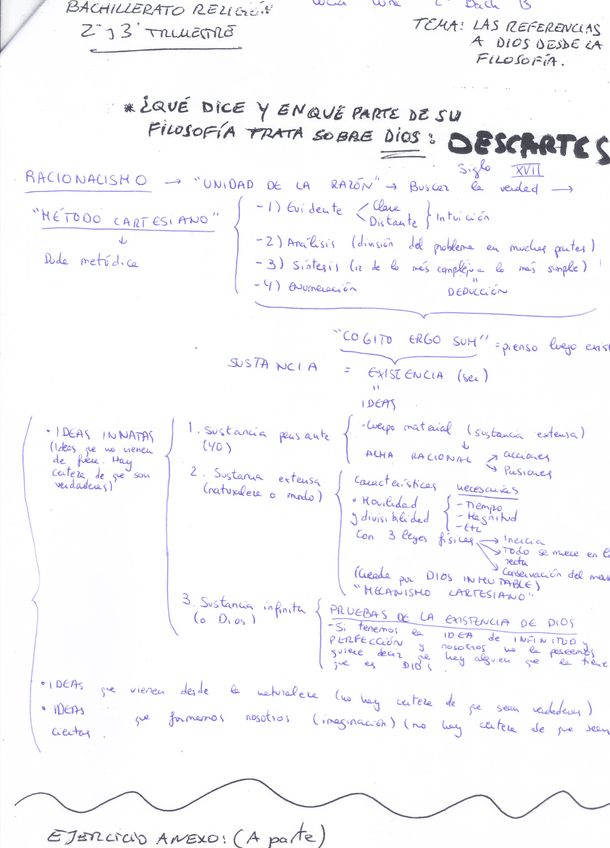 BACHILLERATO RELIGIÓN
2º y 3º TRIMESTRE
2º Bach B
TEMA: LAS REFERENCIAS
A DIOS DESDE LA
FILOSOFÍA.
* ¿QUÉ DICE Y EN QUÉ PARTE DE SU
FILOSOFÍA TRATA SOBRE DIOS: DESCARTES
Siglo XVII
RACIONALISMO → "UNIDAD DE LA RAZÓN" → Buscar la verdad →
"MÉTODO CARTESIANO"
↓
Duda metódica
-1) Evidente < Clara
Distante } Intuición
-2) Análisis (división del problema en muchas partes)
-3) Síntesis (ir de lo más complejo a lo más simple)
-4) Enumeración
DEDUCCIÓN
"COGITO ERGO SUM" = pienso luego exis
SUSTANCIA = EXISTENCIA (ser)
IDEAS
• IDEAS INNATAS
(Ideas qe no vienen
de fuera. Hay
certeza de qe son
verdaderas)
1. Sustancia pensante
(YO)
• Cuerpo material (sustancia extensa)
↓
ALMA RACIONAL → acciones
→ Pasiones
2. Sustancia extensa
(naturaleza o mundo)
Características necesarias
• Movilidad
y divisibilidad
- Tiempo
- Magnitud
- Etc
Con 3 leyes físicas → Inercia
→ Todo se mueve en l
recta
→ Conservación del mov
(Creada por DIOS INMUTABLE)
"MECANISMO CARTESIANO"
3. Sustancia infinita
(o Dios)
PRUEBAS DE LA EXISTENCIA DE DIOS
- Si tenemos la IDEA de INFINITUD y
PERFECCIÓN y nosotros no la poseemos
quiere decir qe hay alguien que la tiene
que es DIOS.
• IDEAS qe vienen desde la naturaleza (no hay certeza de qe sean verdaderas)
• IDEAS que formamos nosotros (imaginación) (no hay certeza de qe sean
ciertas.
EJERCICIO ANEXO: (A parte)